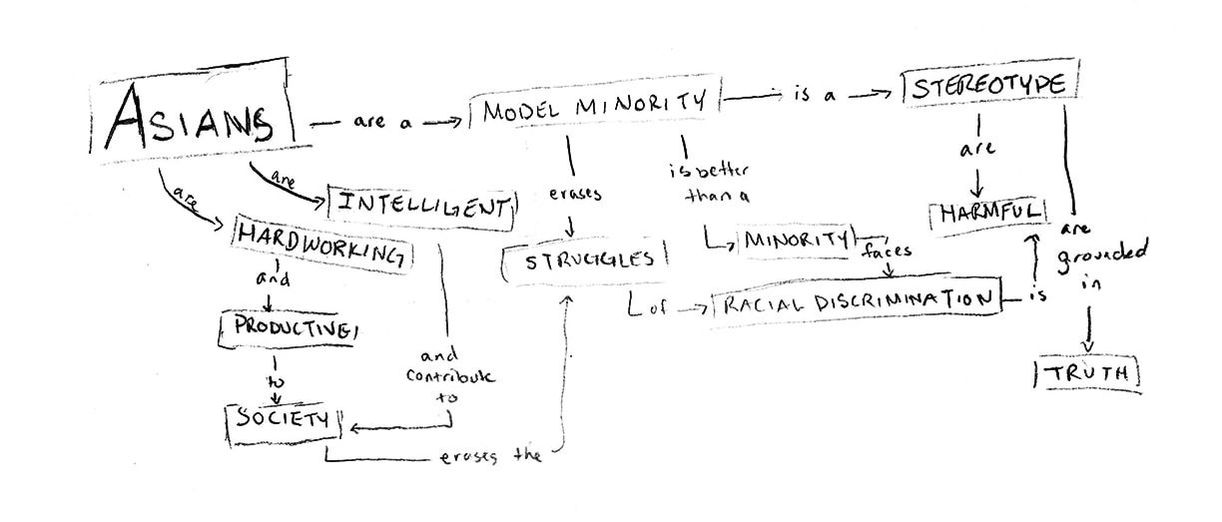 ASIANS
are a
MODEL MINORITY
is a
STEREOTYPE
are
are
INTELLIGENT
HARDWORKING
and
PRODUCTIVE
to
SOCIETY
and
contribute
to
erases the
erases
STRUGGLES
of
is better
than a
MINORITY
faces
RACIAL DISCRIMINATION
is
are
HARMFUL
are
grounded
in
TRUTH